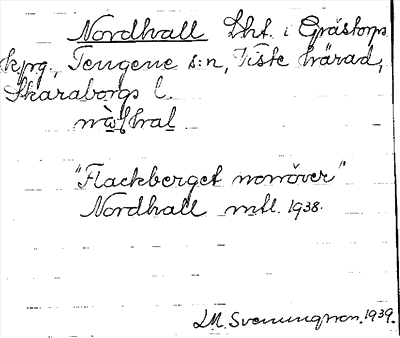 Nordhall Lht. i Grästorps
kpg., Tengene s:n, Viste härad,
Skaraborgs l.
"Flackberget norröver"
Nordhall mtl. 1938.
1939.